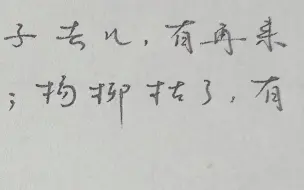 子去了，有再来
；杨柳枯了，有